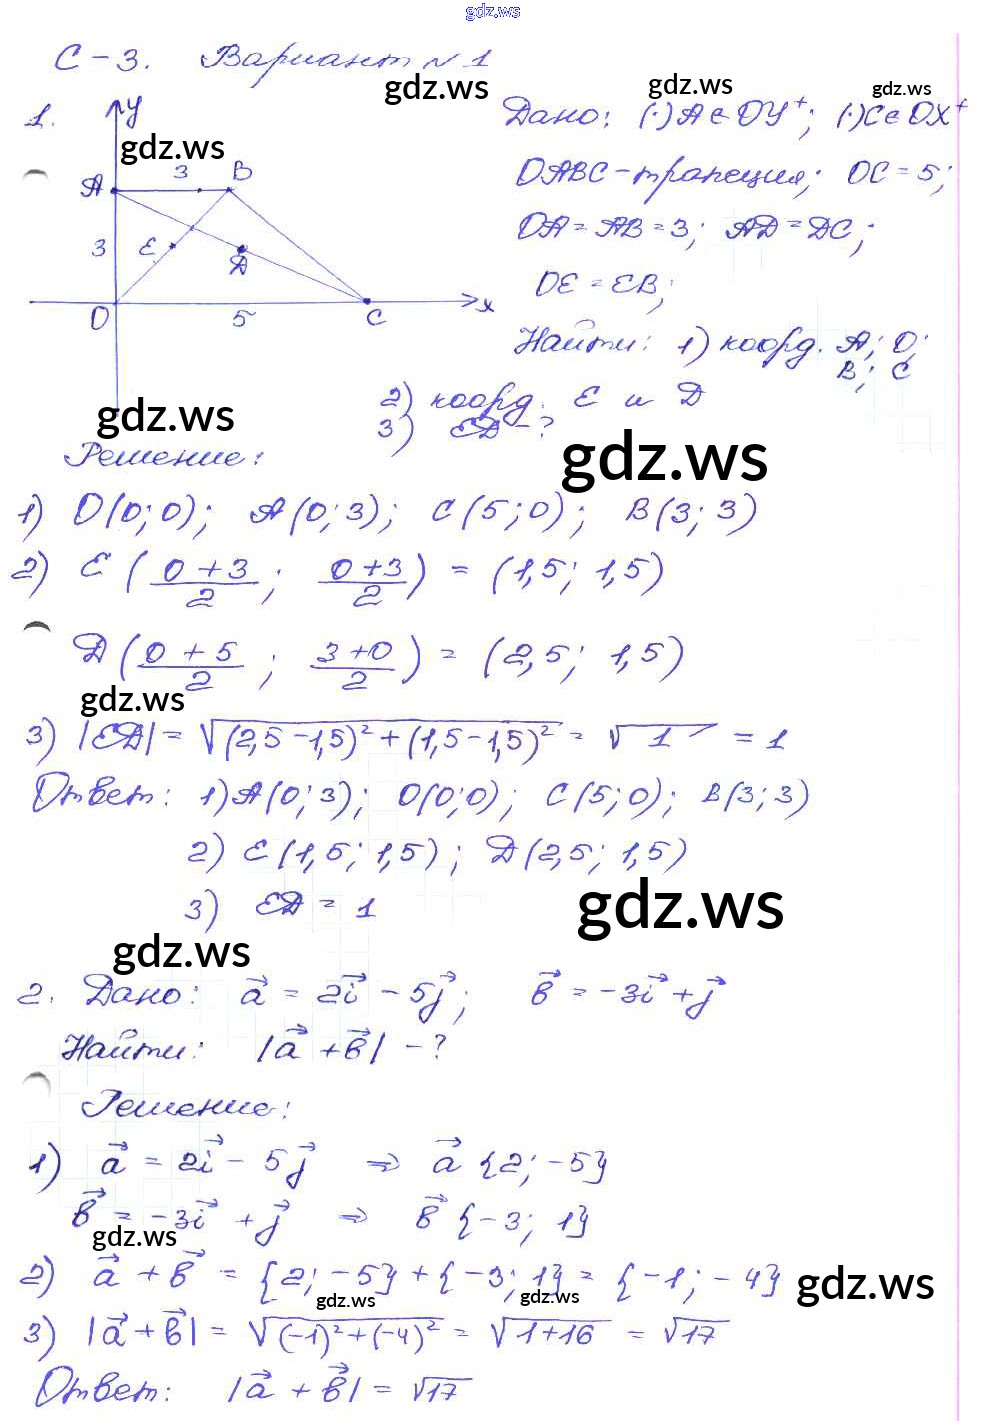 gdz.ws
С-3. Вариант №1
gdz.ws gdz.ws gdz.ws
1. y Дано: (·)A∈OY⁺; (·)C∈OX⁺
gdz.ws
A 3 B OABC-трапеция; OC=5;
3 E D OA=AB=3; AD=DC;
OE=EB;
O 5 C x
Найти: 1) коорд. A; O; B; C
2) коорд. E и D
gdz.ws
3) ED-?
Решение:
gdz.ws
1) O(0;0); A(0;3); C(5;0); B(3;3)
2) E((0+3)/2; (0+3)/2) = (1,5; 1,5)
D((0+5)/2; (3+0)/2) = (2,5; 1,5)
gdz.ws
3) |ED|=√((2,5-1,5)²+(1,5-1,5)²)=√1 =1
Ответ: 1)A(0;3); O(0;0); C(5;0); B(3;3)
2) E(1,5; 1,5); D(2,5; 1,5)
3) ED = 1
gdz.ws
gdz.ws
2. Дано: a⃗ = 2i⃗ - 5j⃗; b⃗ = -3i⃗+j⃗
Найти: |a⃗+b⃗| - ?
Решение:
1) a⃗ = 2i⃗ - 5j⃗ ⇒ a⃗ {2; -5}
b⃗ = -3i⃗ + j⃗ ⇒ b⃗ {-3; 1}
gdz.ws
2) a⃗ + b⃗ = {2; -5}+{-3; 1}= {-1; -4}
gdz.ws
gdz.ws gdz.ws
3) |a⃗+b⃗| = √((-1)²+(-4)²) = √(1+16) = √17
Ответ: |a⃗ + b⃗| = √17